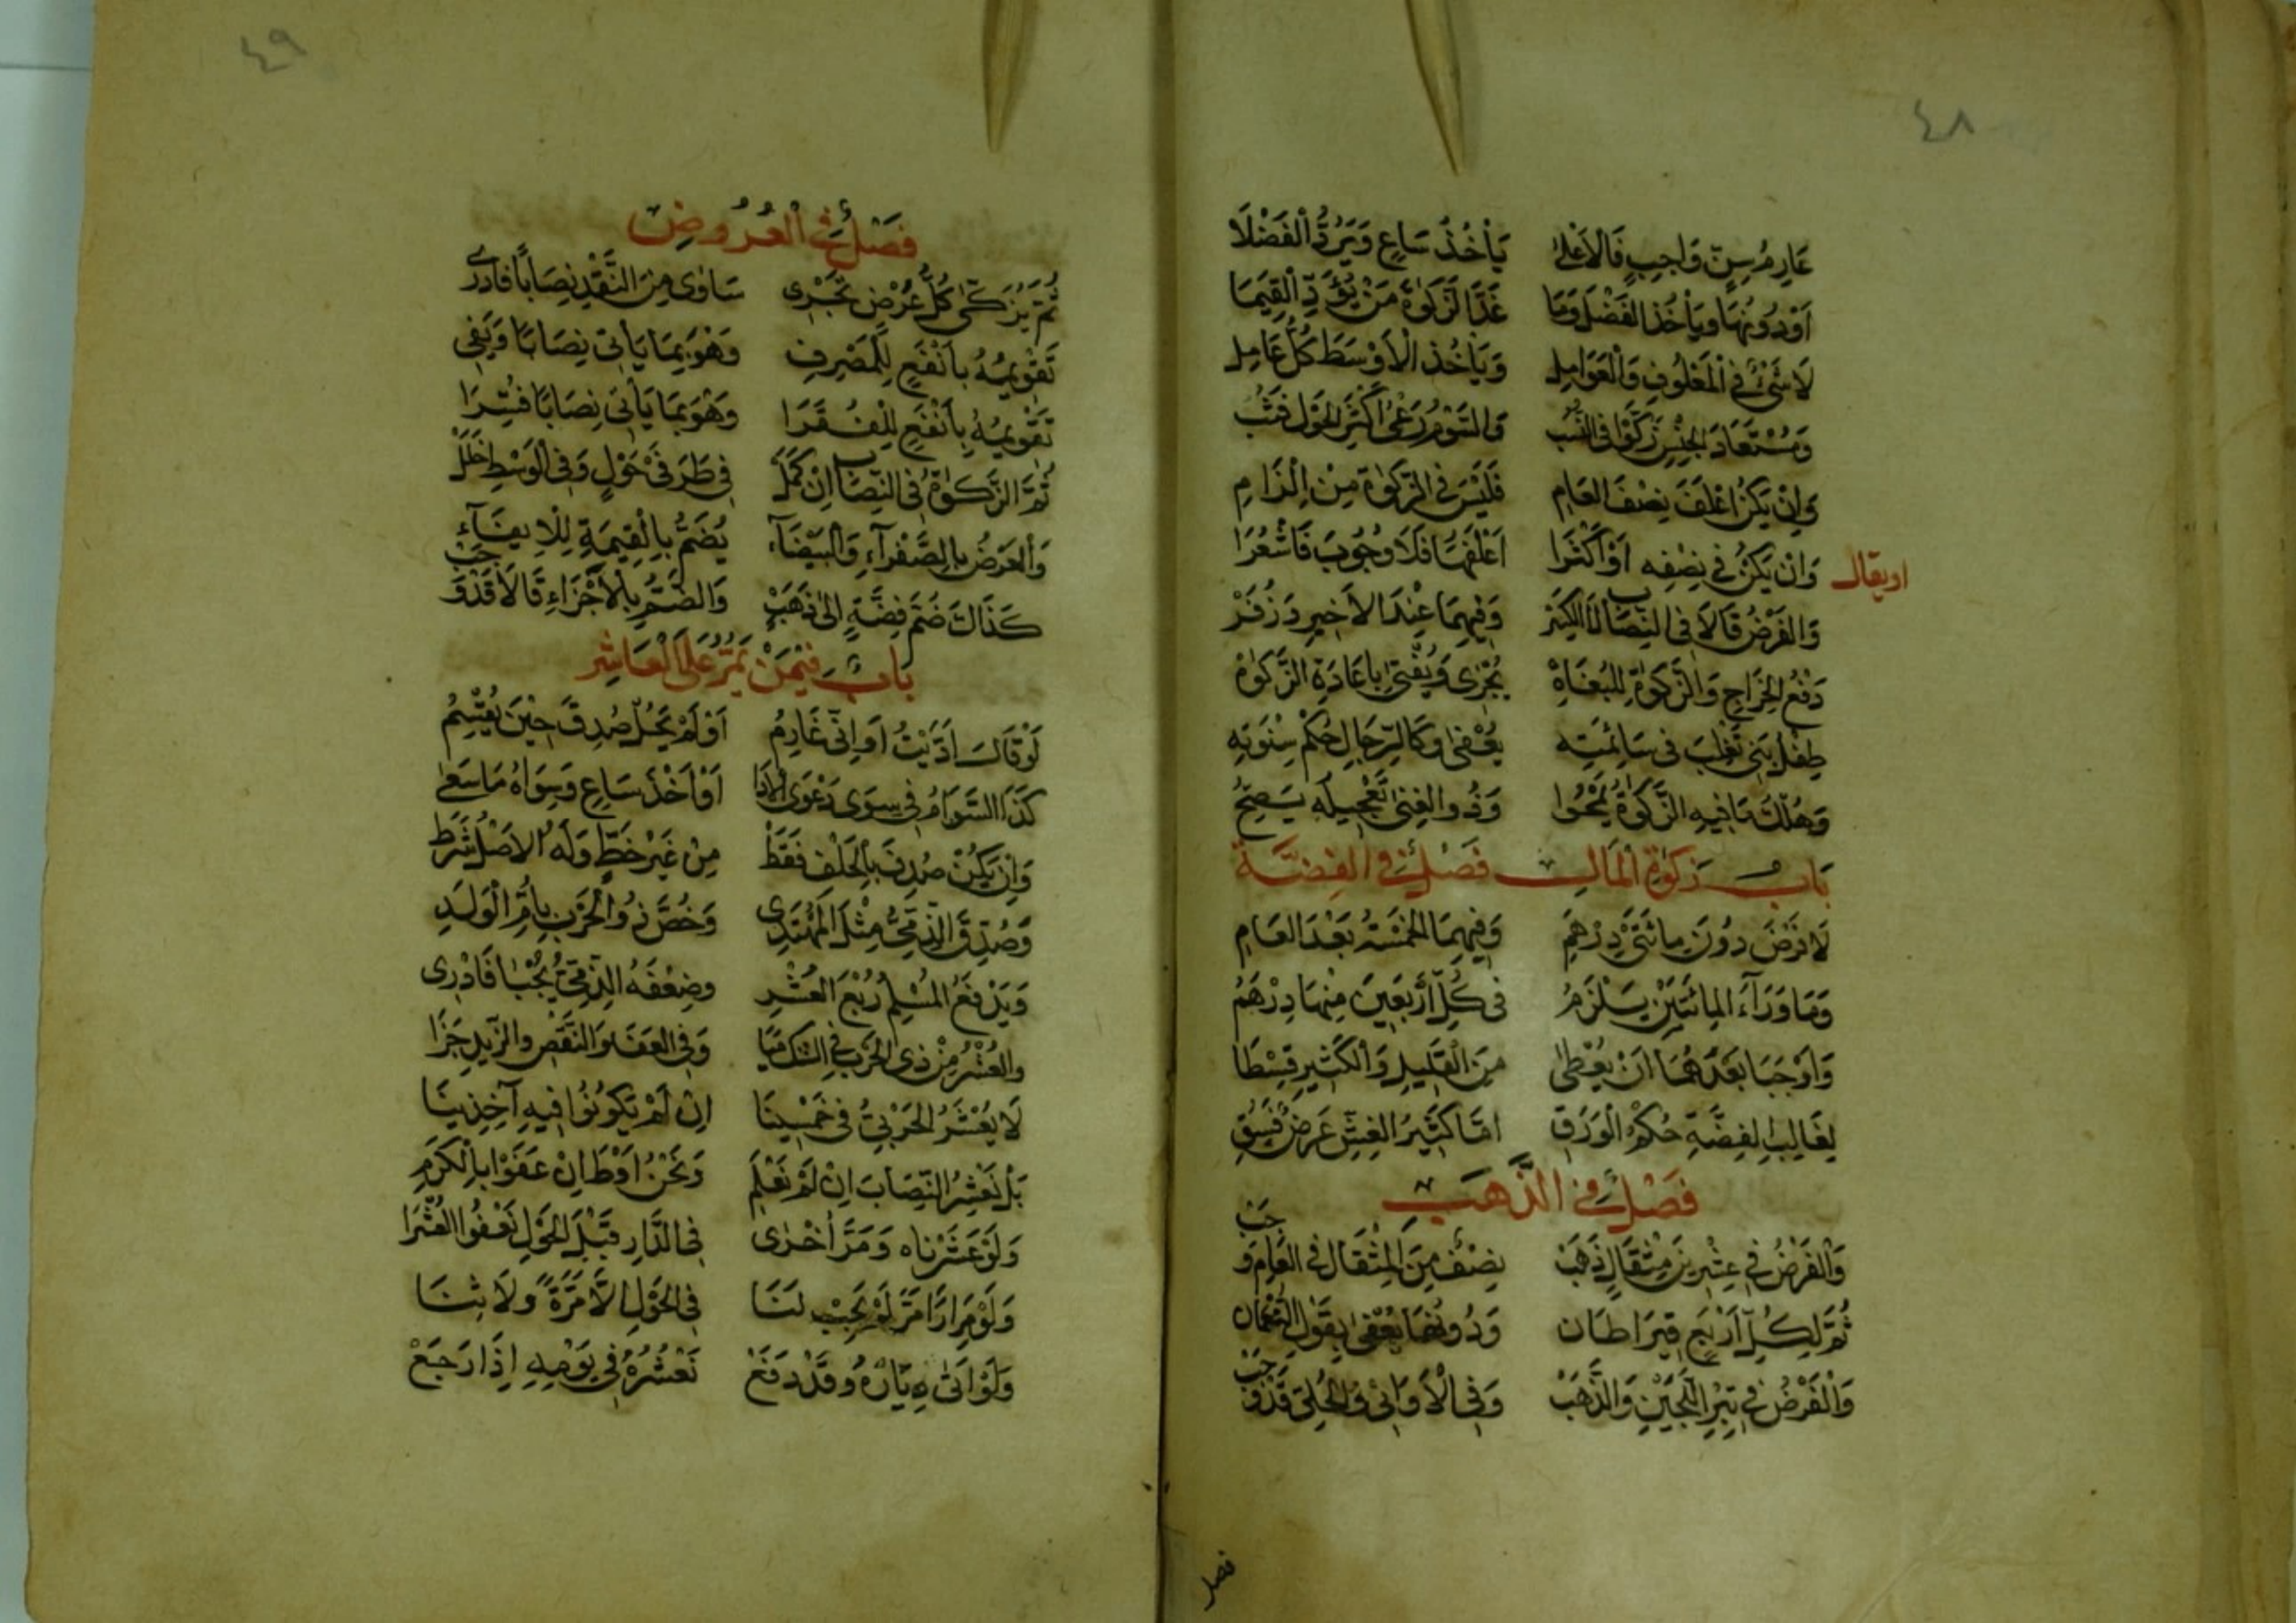 ٤٨
عَادِمُ سِنٍّ وَاجِبٍ فَالْاَعْلٰى يَأْخُذُ سَاعٍ وَيَرُدُّ الْفَضْلَا
اَوْدُونَهَا وَيَأْخُذُ الْفَضْلَ وَمَا غَدَا لزَكٰوةُ مَنْ يُؤَدِّ الْقِيَمَا
لَا شَىْءَ فِى الْمَعْلُوفِ وَالْعَوَامِلِ وَيَأْخُذُ الْاَوْسَطَ كُلُّ عَامِلِ
وَمُسْتَفَادَ الْجِنْسِ زَكَّوْا فِى النَّسَبْ وَالسَّوْمُ رَعْىُ اَكْثَرِ الْحَوْلِ فَثُبْ
وَاِنْ يَكُنْ اَعْلَفَ نِصْفَ الْعَامِ فَلَيْسَ فِى الزَّكٰوةِ مِنْ اِلْزَامِ
اويقال وَاِنْ يَكُنْ فِى نِصْفِهِ اَوْ اَكْثَرَا اَعْلَفَهَا فَلَا وُجُوبَ فَاشْعُرَا
وَالْفَرْضُ قَالَا فِى النِّصَابِ لَا الْكِبَرْ وَفِيهِمَا عِنْدَ الْاَخِيرِ وَزُفَرْ
دَفْعُ الْخَرَاجِ وَالزَّكٰوةِ لِلْبُغَاةْ يُجْزِى وَيُفْتٰى بِاِعَادَةِ الزَّكٰوةْ
طِفْلُ بَنِى تَغْلِبَ فِى سَائِمَتِهْ يُعْفٰى وَكَالرِّجَالِ حُكْمُ نِسْوَتِهْ
وَهُلْكُ مَا فِيهِ الزَّكٰوةُ يَمْحُوا وَذُو الْغِنٰى تَعْجِيلُهُ يَصِحُّ
بَابُ زَكٰوةِ الْمَالِ فَصْلٌ فِى الْفِضَّةِ
لَا فَرْضَ دُونَ مِائَتَىْ دِرْهَمِ وَفِيهِمَا الْخَمْسَةُ بَعْدَ الْعَامِ
وَمَا وَرَآءَ الْمِائَتَيْنِ يَلْزَمُ فِى كُلِّ اَرْبَعِينَ مِنْهَا دِرْهَمُ
وَاَوْجَبَا بَعْدَهُمَا اَنْ يُعْطٰى مِنَ الْقَلِيلِ وَالْكَثِيرِ قِسْطَا
لِغَالِبِ الْفِضَّةِ حُكْمُ الْوَرَقِ اَمَّا كَثِيرُ الْغِشِّ عَرْضٌ فَسِقِ
فَصْلٌ فِى الذَّهَبِ
وَالْفَرْضُ فِى عِشْرِينَ مِثْقَالٍ ذَهَبْ نِصْفٌ مِنَ الْمِثْقَالِ فِى الْعَامِ وَجَبْ
ثُمَّ لِكُلِّ اَرْبَعٍ قِيرَاطَانِ وَدُونَهَا يُعْفٰى بِقَوْلِ النُّعْمَانِ
وَالْفَرْضُ فِى تِبْرِ اللُّجَيْنِ وَالذَّهَبْ وَفِى الْاَوَانِى وَالْحُلِىِّ قَدْ وَجَبْ
فصل
٤٩
فَصْلٌ فِى الْعُرُوضِ
ثُمَّ يُزَكّٰى كُلُّ عَرْضٍ تَجْرِى سَاوٰى مِنَ النَّقْدِ نِصَابًا فَادْرِى
تَقْوِيمُهُ بِاَنْفَعٍ لِلْمَصْرِفِ وَهْوَ بِمَا يَأْتِى نِصَابًا وَيَفِى
تَقْوِيمُهُ بِاَنْفَعٍ لِلْفُقَرَا وَهْوَ بِمَا يَأْتِى نِصَابًا فُسِّرَا
ثُمَّ الزَّكٰوةُ فِى النِّصَابِ اِنْ كَمَلْ فِى طَرَفَىْ حَوْلٍ وَفِى الْوَسْطِ اخَلّْ
وَالْعَرْضُ بِالصَّفْرَآءِ وَالْبَيْضَآءِ يُضَمُّ بِالْقِيمَةِ لِلْاِيفَآءِ
كَذَاكَ ضُمَّ فِضَّةٍ اِلٰى ذَهَبْ وَالضَّمُّ بِالْاَجْزَاءِ قَالَا قَدْ وَجَبْ
بَابٌ فِيمَنْ يَمُرُّ عَلَى الْعَاشِرِ
لَوْ قَالَ اَدَّيْتُ اَوْ اِنِّى غَارِمُ اَوْ لَمْ يَحُلْ صُدِقَ حِينَ يُقْسِمُ
كَذَا السَّوَامُ فِى سِوَى دَعْوَى الْاَدَا اَوْ اَخْذُ سَاعٍ وَسِوَاهُ مَا سَعٰى
وَاِنْ يَكُنْ صُدِقَ بِالْحَلْفِ فَقَطْ مِنْ غَيْرِ خَطٍّ وَلَهُ الْاَصْلُ شَرَطْ
وَصُدِّقَ الذِّمِّىُّ مِثْلَ الْمُهْتَدِى وَخُصَّ ذُو الْحَرْبِ بِاُمِّ الْوَلَدِ
وَيَدْفَعُ الْمُسْلِمُ رُبْعَ الْعُشْرِ وَضِعْفَهُ الذِّمِّىُّ يُجْبٰا فَادْرِى
وَالْعُشْرُ مِنْ ذِى الْحَرْبِ فِى وَفِى الْعَفْوِ وَالنَّقْصِ وَالزَّيْدِ جَزَا
لَا يُعْشَرُ الْحَرْبِىُّ فِى خَمْسِينَا اِنْ لَمْ يَكُونُوا فِيهِ آخِذِينَا
بَلْ نَعْشِرُ النِّصَابَ اِنْ لَمْ نَعْلَمِ وَنَحْنُ اَوْطَا اِنْ عَفَوْا بِالْكَرَمِ
وَلَوْ عَشَرْنَاه وَمَرَّ اُخْرٰى فِى الدَّارِ قَبْلَ الْحَوْلِ نَعْفُوا الْعُشْرَا
وَلَوْ مِرَارًا مَرَّ لَمْ يَجِبْ لَنَا فِى الْحَوْلِ اِلَّا مَرَّةً وَلَا ثِنَا
وَلَوْ اَتٰى دِيَارَهُ وَقَدْ دَفَعْ نَعْشُرُهُ فِى يَوْمِهِ اِذَا رَجَعْ